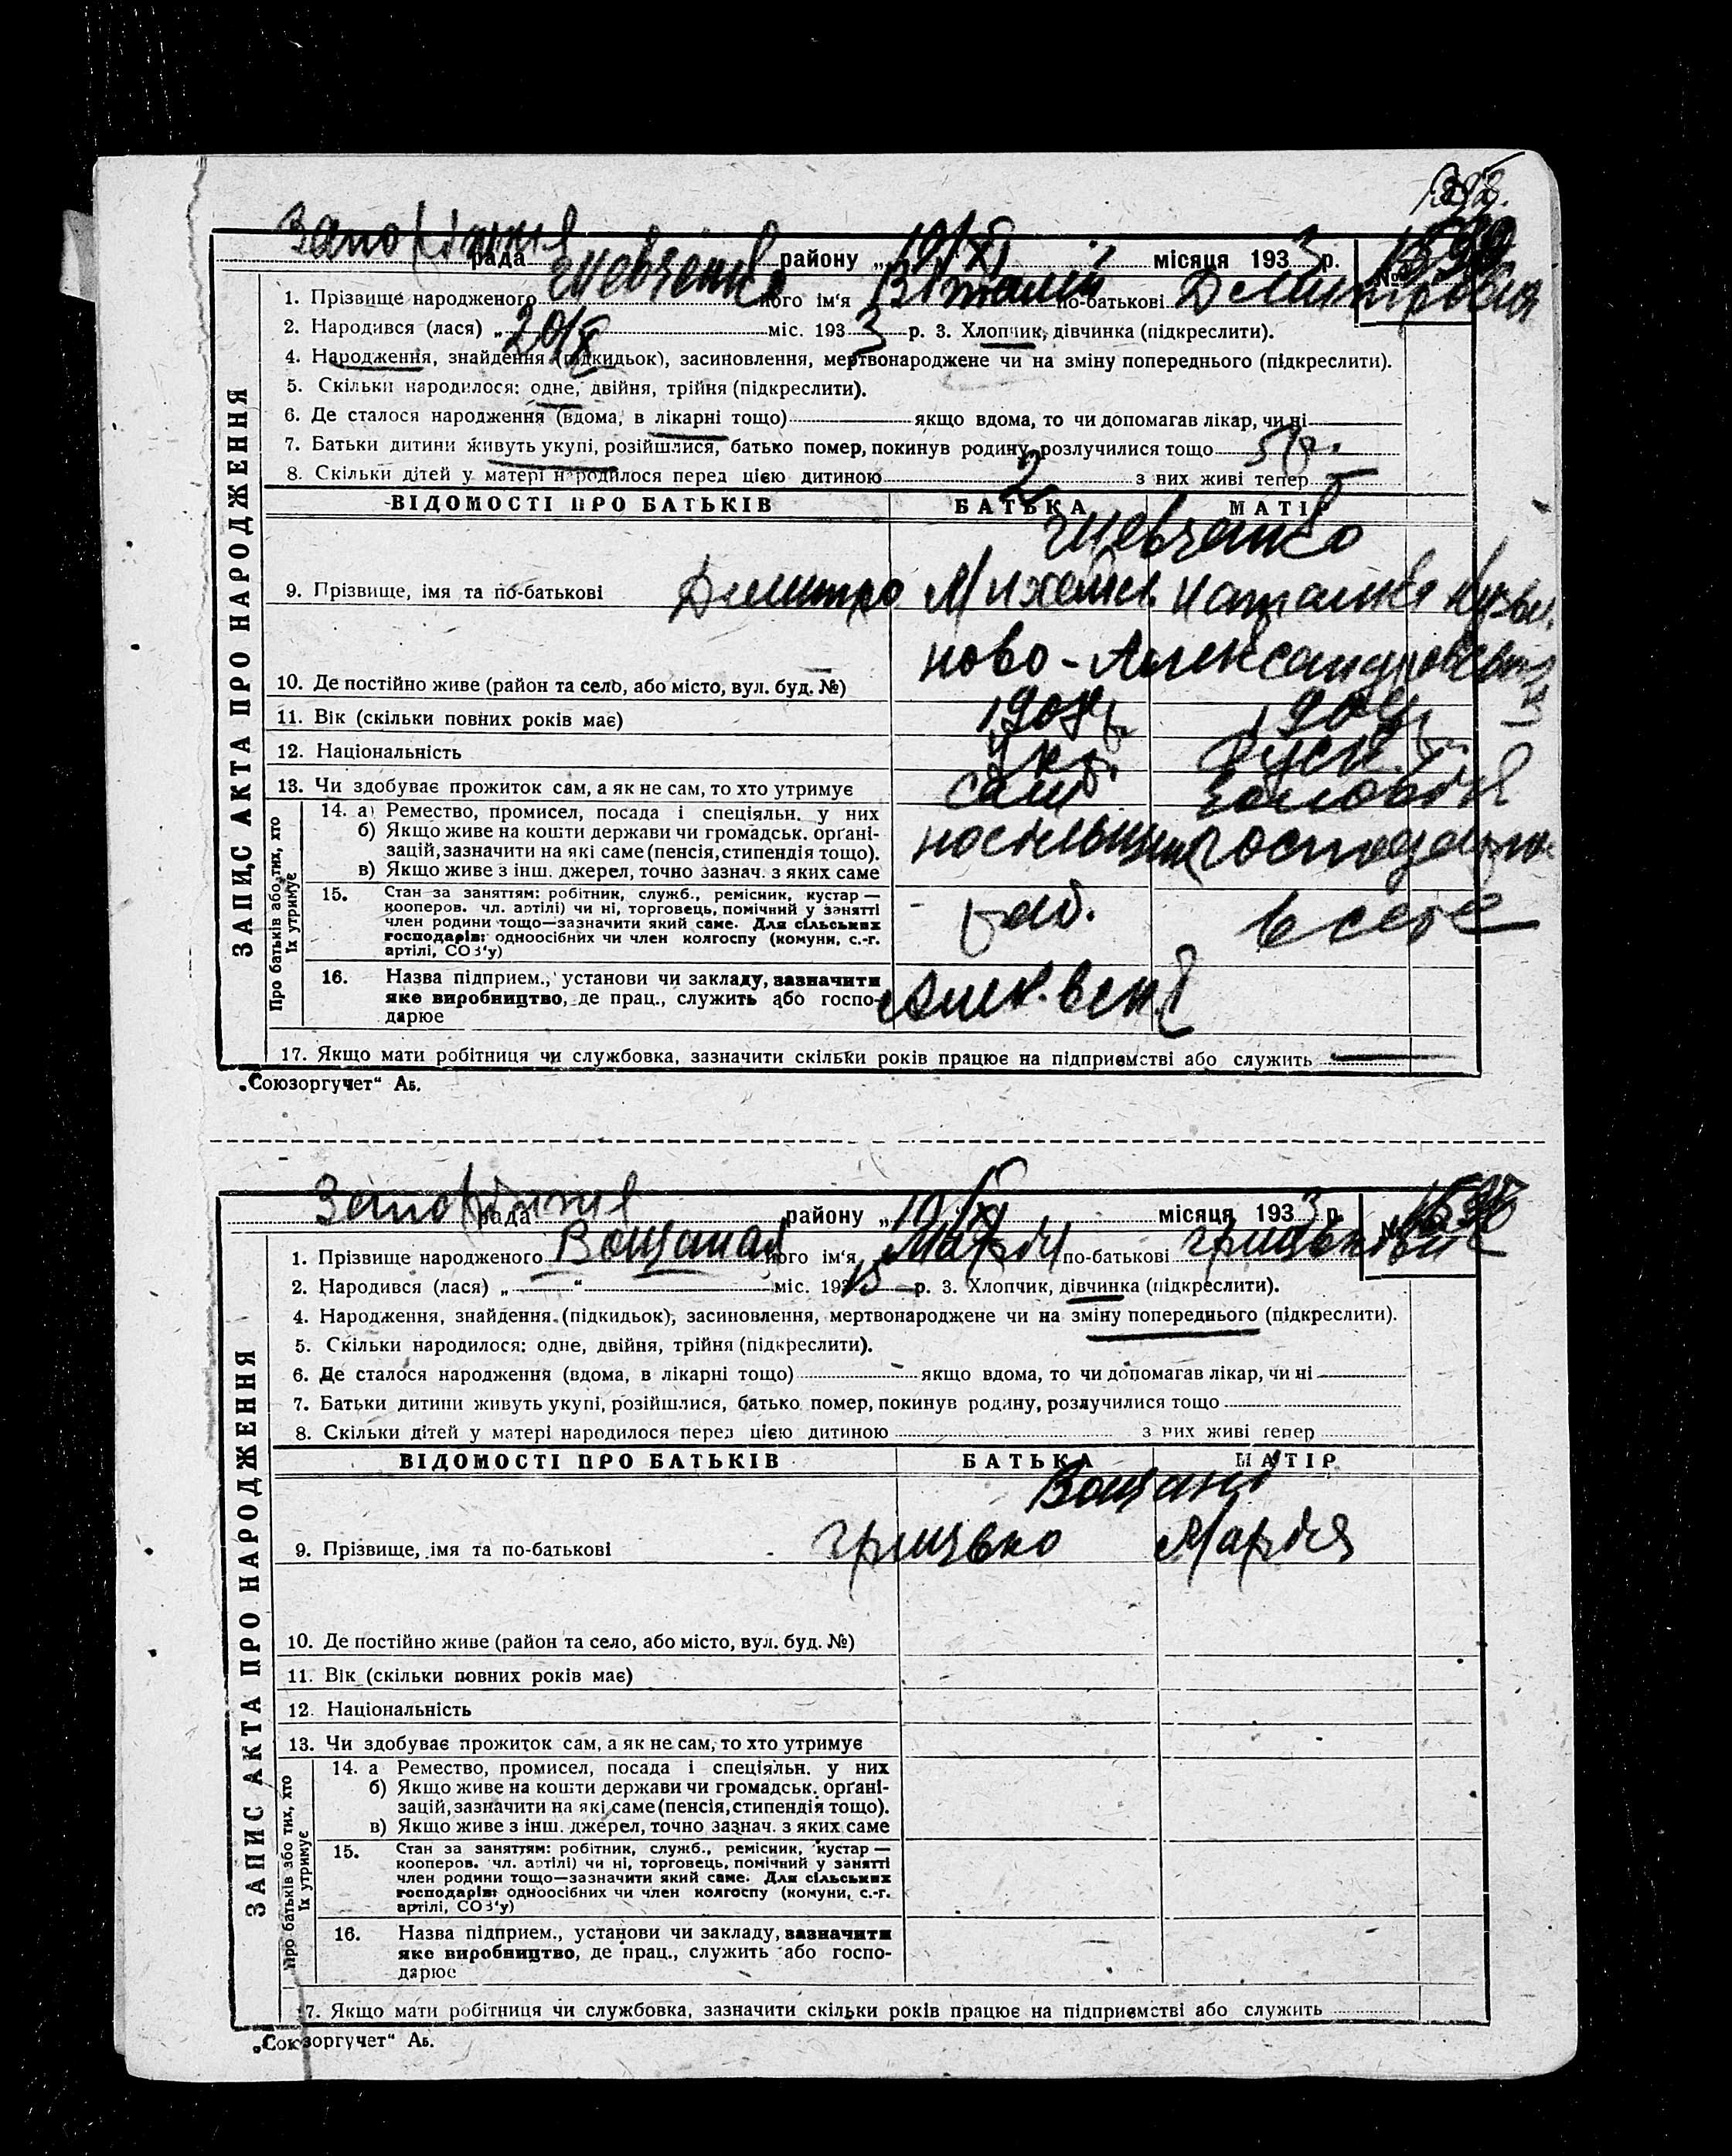 Запоріжжя рада району „10/XI місяця 1933 р. №
1. Прізвище народженого Шевченко його ім'я Віталій по-батькові Дмитрович
2. Народився (лася) „20/X міс. 1933 р. 3. Хлопчик, дівчинка (підкреслити).
4. Народження, знайдення (підкидьок), засиновлення, мертвонароджене чи на зміну попереднього (підкреслити).
5. Скільки народилося: одне, двійня, трійня (підкреслити).
6. Де сталося народження (вдома, в лікарні тощо) якщо вдома, то чи допомагав лікар, чи ні
7. Батьки дитини живуть укупі, розійшлися, батько помер, покинув родину, розлучилися тощо 5 р.
8. Скільки дітей у матері народилося перед цією дитиною 2 з них живі тепер
ВІДОМОСТІ ПРО БАТЬКІВ БАТЬКА МАТІР
Шевченко
9. Прізвище, імя та по-батькові Дмитро Михайл. Наталія Кузьм.
Ново-Александровська
10. Де постійно живе (район та село, або місто, вул. буд. №) 3
11. Вік (скільки повних років має) 1907 р. 1909 р.
12. Національність Укр. Руск.
13. Чи здобуває прожиток сам, а як не сам, то хто утримує сам. чоловік
14. а) Ремество, промисел, посада і спеціяльн. у них
б) Якщо живе на кошти держави чи громадськ. орґані-
зацій, зазначити на які саме (пенсія, стипендія тощо).
в) Якщо живе з інш. джерел, точно зазнач. з яких саме
15. Стан за заняттям: робітник, служб., ремісник, кустар —
кооперов. чл. артілі) чи ні, торговець, помічний у занятті
член родини тощо—зазначити який саме. Для сільських
господарів: одноосібних чи член колгоспу (комуни, с.-г.
артілі, СОЗ'у)
роб.
16. Назва підприєм., установи чи закладу, зазначити
яке виробництво, де прац., служить або госпо-
дарює
17. Якщо мати робітниця чи службовка, зазначити скільки років працює на підприємстві або служить
ЗАПИС АКТА ПРО НАРОДЖЕННЯ
Про батьків або тих, хто
їх утримує
„Союзоргучет" Аб.
Запоріжжя рада району „10/XI місяця 1933 р. №
1. Прізвище народженого Вощаная його ім'я Марія по-батькові Грицьківна
2. Народився (лася) „ “ міс. 1915 р. 3. Хлопчик, дівчинка (підкреслити).
4. Народження, знайдення (підкидьок), засиновлення, мертвонароджене чи на зміну попереднього (підкреслити).
5. Скільки народилося: одне, двійня, трійня (підкреслити).
6. Де сталося народження (вдома, в лікарні тощо) якщо вдома, то чи допомагав лікар, чи ні
7. Батьки дитини живуть укупі, розійшлися, батько помер, покинув родину, розлучилися тощо
8. Скільки дітей у матері народилося перед цією дитиною з них живі тепер
ВІДОМОСТІ ПРО БАТЬКІВ БАТЬКА МАТІР
Вощані
9. Прізвище, імя та по-батькові Грицько Марія
10. Де постійно живе (район та село, або місто, вул. буд. №)
11. Вік (скільки повних років має)
12. Національність
13. Чи здобуває прожиток сам, а як не сам, то хто утримує
14. а Ремество, промисел, посада і спеціяльн. у них
б) Якщо живе на кошти держави чи громадськ. орґані-
зацій, зазначити на які саме (пенсія, стипендія тощо).
в) Якщо живе з інш. джерел, точно зазнач. з яких саме
15. Стан за заняттям: робітник, служб., ремісник, кустар —
кооперов. чл. артілі) чи ні, торговець, помічний у занятті
член родини тощо—зазначити який саме. Для сільських
господарів: одноосібних чи член колгоспу (комуни, с.-г.
артілі, СОЗ'у)
16. Назва підприєм., установи чи закладу, зазначити
яке виробництво, де прац., служить або госпо-
дарює
17. Якщо мати робітниця чи службовка, зазначити скільки років працює на підприємстві або служить
ЗАПИС АКТА ПРО НАРОДЖЕННЯ
Про батьків або тих, хто
їх утримує
„Союзоргучет" Аб.